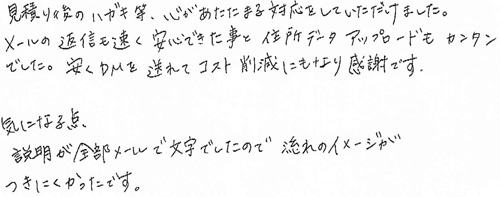 見積り後のハガキ等、心があたたまる対応をしていただけました。
メールの返信も速く安心できた事と住所データアップロードもカンタン
でした。安くDMを送れてコスト削減にもなり感謝です.
気になる点、
説明が全部メールで文字でしたので流れのイメージが
つきにくかったです。